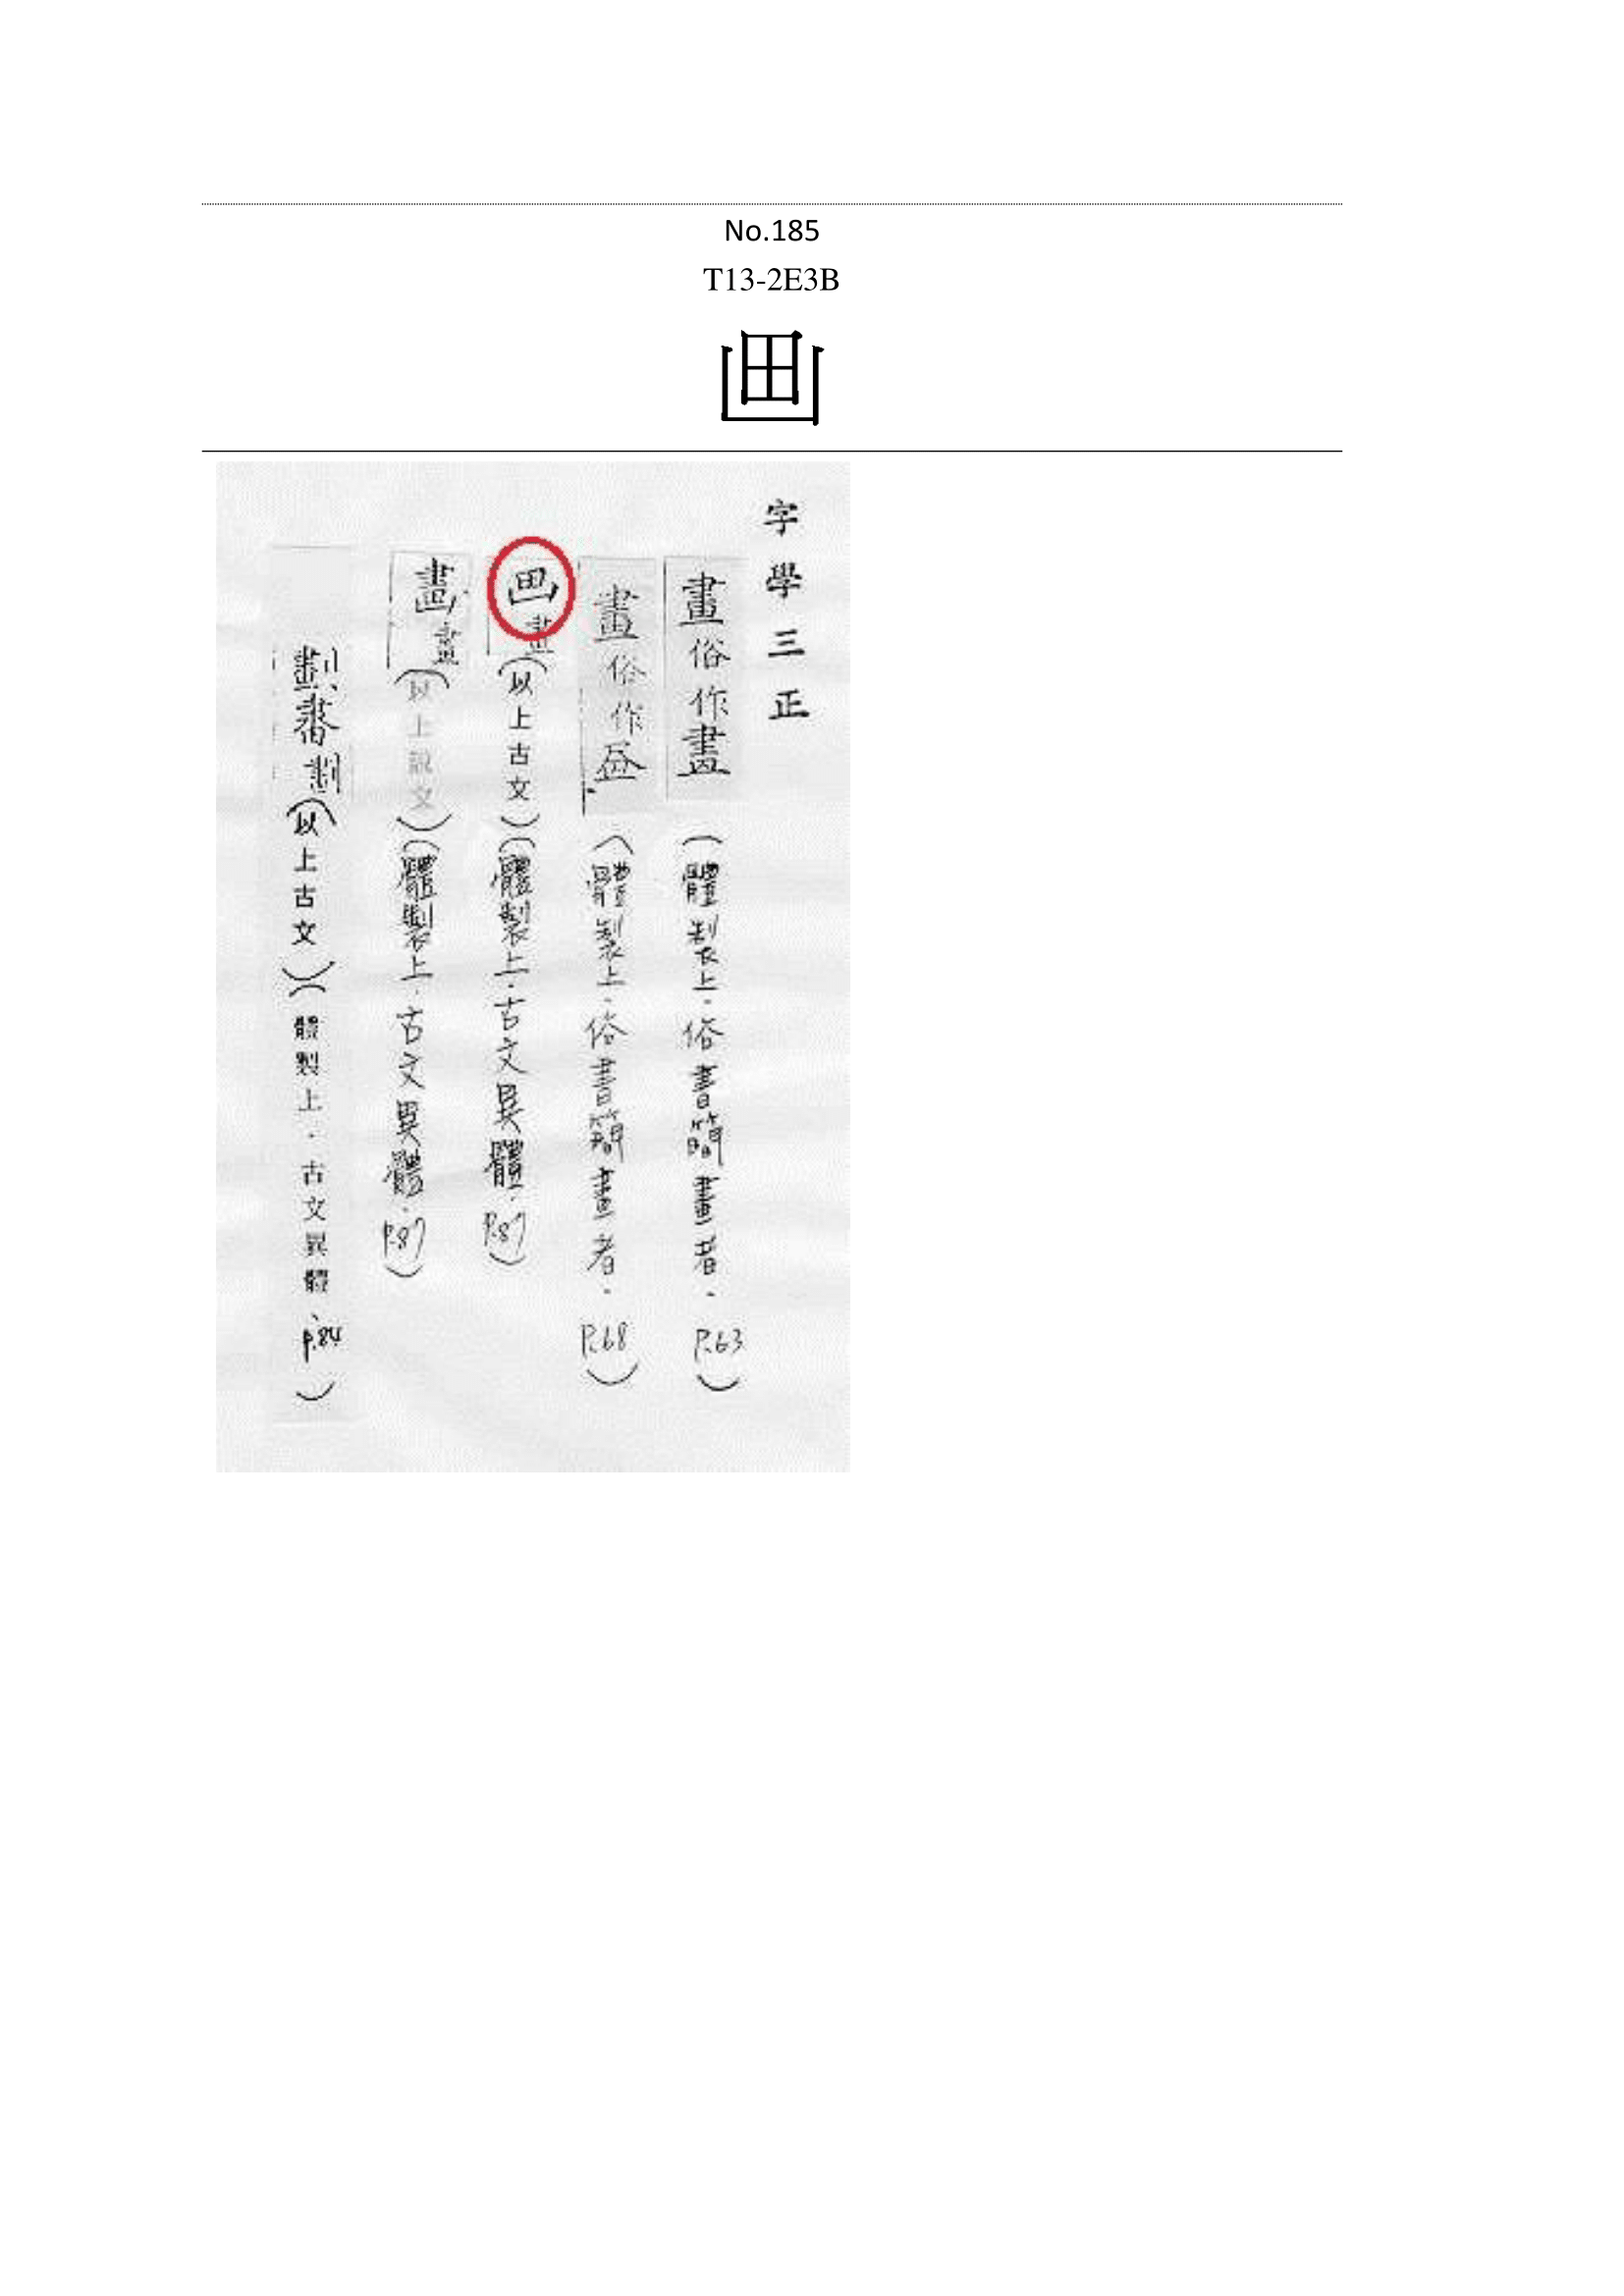 No.185
T13-2E3B
字學三正
畫俗作畵(體製上.俗書簡畫者.P.63)
畫俗作(體製上.俗書簡畫者.P.68)
畫(以上古文)(體製上.古文異體.P.87)
畫(以上說文)(體製上.古文異體.P.87)
(以上古文)(體製上.古文異體P.84)